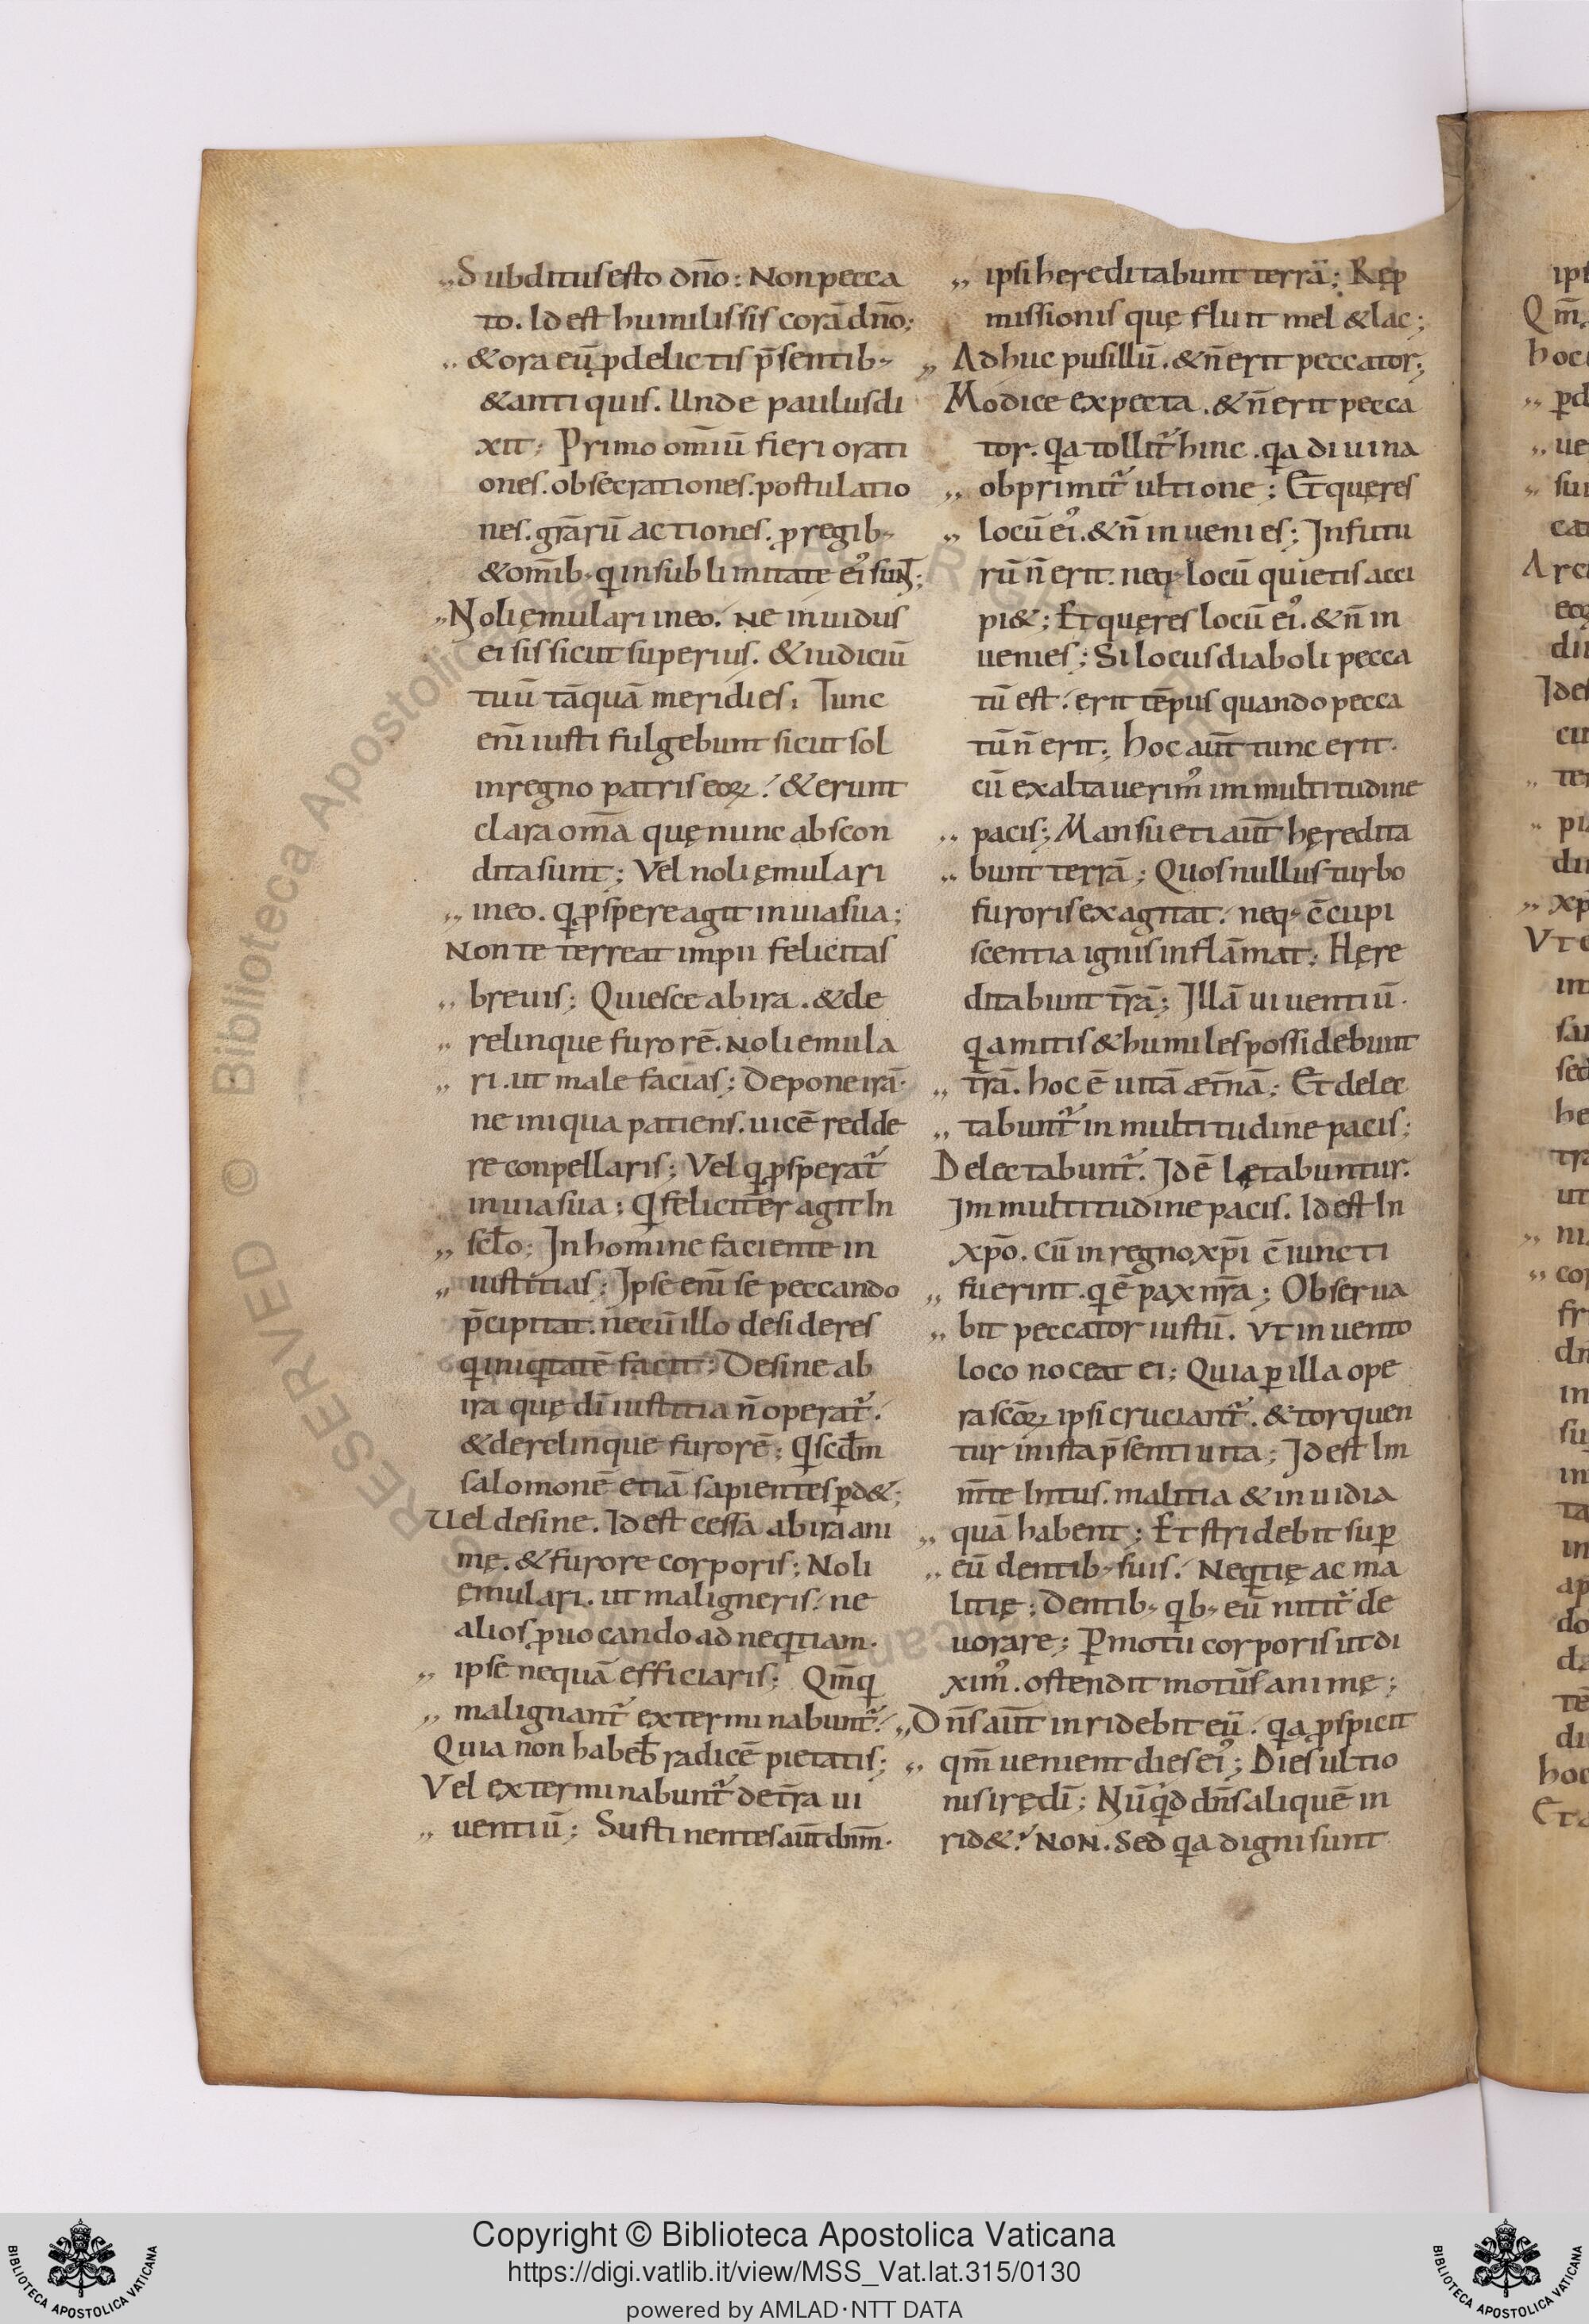 „Subditus esto dn̄o: Non pecca
to. Id est humilis sis corā dn̄o;
„ & ora eū ꝓ delictis p̄sentib;
& antiquis. Unde paulus di
xit; Primo om̄iū fieri orati
ones. obsecrationes. postulatio
nes. grārū actiones. ꝓ regib;
& om̄ib; qi in sublimitate ei' sunt;
„Noli ęmulari in eo. Ne inuidus
ei sis sicut superius. & iudiciū
tuū tāquā meridies; Tunc
enī iusti fulgebunt sicut sol
in regno patris eoꝝ. & erunt
clara om̄a quę nunc abscon
dita sunt; Vel noli ęmulari
„ in eo. qi ꝓspere agit in uia sua;
Non te terreat impii felicitas
„ breuis; Quiesce ab ira. & de
„ relinque furorē. Noli emula
„ ri. ut male facias; Depone irā.
ne iniqua patiens. uicē redde
re conpellaris; Vel qi ꝓsperat᷑
in uia sua; Qi feliciter agit In
„ sc̄lo; In homine faciente in
„ iustitias; Ipse enī se peccando
p̄cipitat. nec cū illo desideres
qi iniqitatē facit; Desine ab
ira quę dī iustitia n̄ operat᷑.
& derelinque furorē; Qi scd̄m
salomonē etiā sapientes ꝑd&;
Uel desine. Id est cessa ab ira ani
mę. & furore corporis; Noli
ęmulari. ut maligneris. ne
alios ꝓuocando ad neqitiam.
„ ipse nequā efficiaris; Qm̄ qi
„ malignant᷑ exterminabunt᷑.
Quia non habeb̄ radicē pietatis;
Vel exterminabunt᷑ de t̄ra ui
„ uentiū; Sustinentes aūt dnm̄.
„ ipsi hereditabunt terrā; Reꝓ
missionis quę fluit mel & lac;
„ Adhuc pusillū. & n̄ erit peccator;
Modice expecta. & n̄ erit pecca
tor. qia tollit᷑ hinc. qia diuina
„ obprimit᷑ ultione; Et quęres
„ locū ei'. & n̄ inuenies; In futu
rū n̄ erit. neq; locū quietis acci
pi&; Et quęres locū ei'. & n̄ in
uenies; Si locus diaboli pecca
tū est. erit tēpus quando pecca
tū n̄ erit; hoc aūt tunc erit.
cū exaltauerim' im multitudine
„ pacis; Mansueti aūt hęredita
„ bunt terrā; Quos nullus turbo
furoris exagitat. neq; c̄cupi
scentia ignis inflāmat; Hęre
ditabunt t̄rā; Illā uiuentiū.
qia mitis & humiles possidebunt
„ t̄rā. hoc ē uitā æt̄nā; Et delec
„ tabunt᷑ in multitudine pacis;
Delectabunt᷑. Id ē lętabuntur.
Im multitudine pacis. Id est In
xp̄o. Cū in regno xp̄i c̄iuncti
„ fuerint. qi ē pax nr̄a; Obserua
„ bit peccator iustū. Vt inuento
loco noceat ei; Quia ꝑ illa ope
ra sc̄oꝝ ipsi cruciant᷑. & torquen
tur in ista p̄senti uita; Id est Im
m̄te Intus. malitia & inuidia
„ quā habent; Et stridebit suꝑ
„ eū dentib; suis. Neqitię ac ma
litię; Dentib; qib; eū nitit᷑ de
uorare; Ꝑ motū corporis ut di
xim'. ostendit motūs animę;
„Dn̄s aūt inridebit eū. qia ꝓspicit
„ qm̄ uenient dies ei'; Dies ultio
nis irę dī; Nūqid dn̄s aliquē in
rid&? NON. Sed qia digni sunt
Copyright © Biblioteca Apostolica Vaticana
https://digi.vatlib.it/view/MSS_Vat.lat.315/0130
powered by AMLAD·NTT DATA